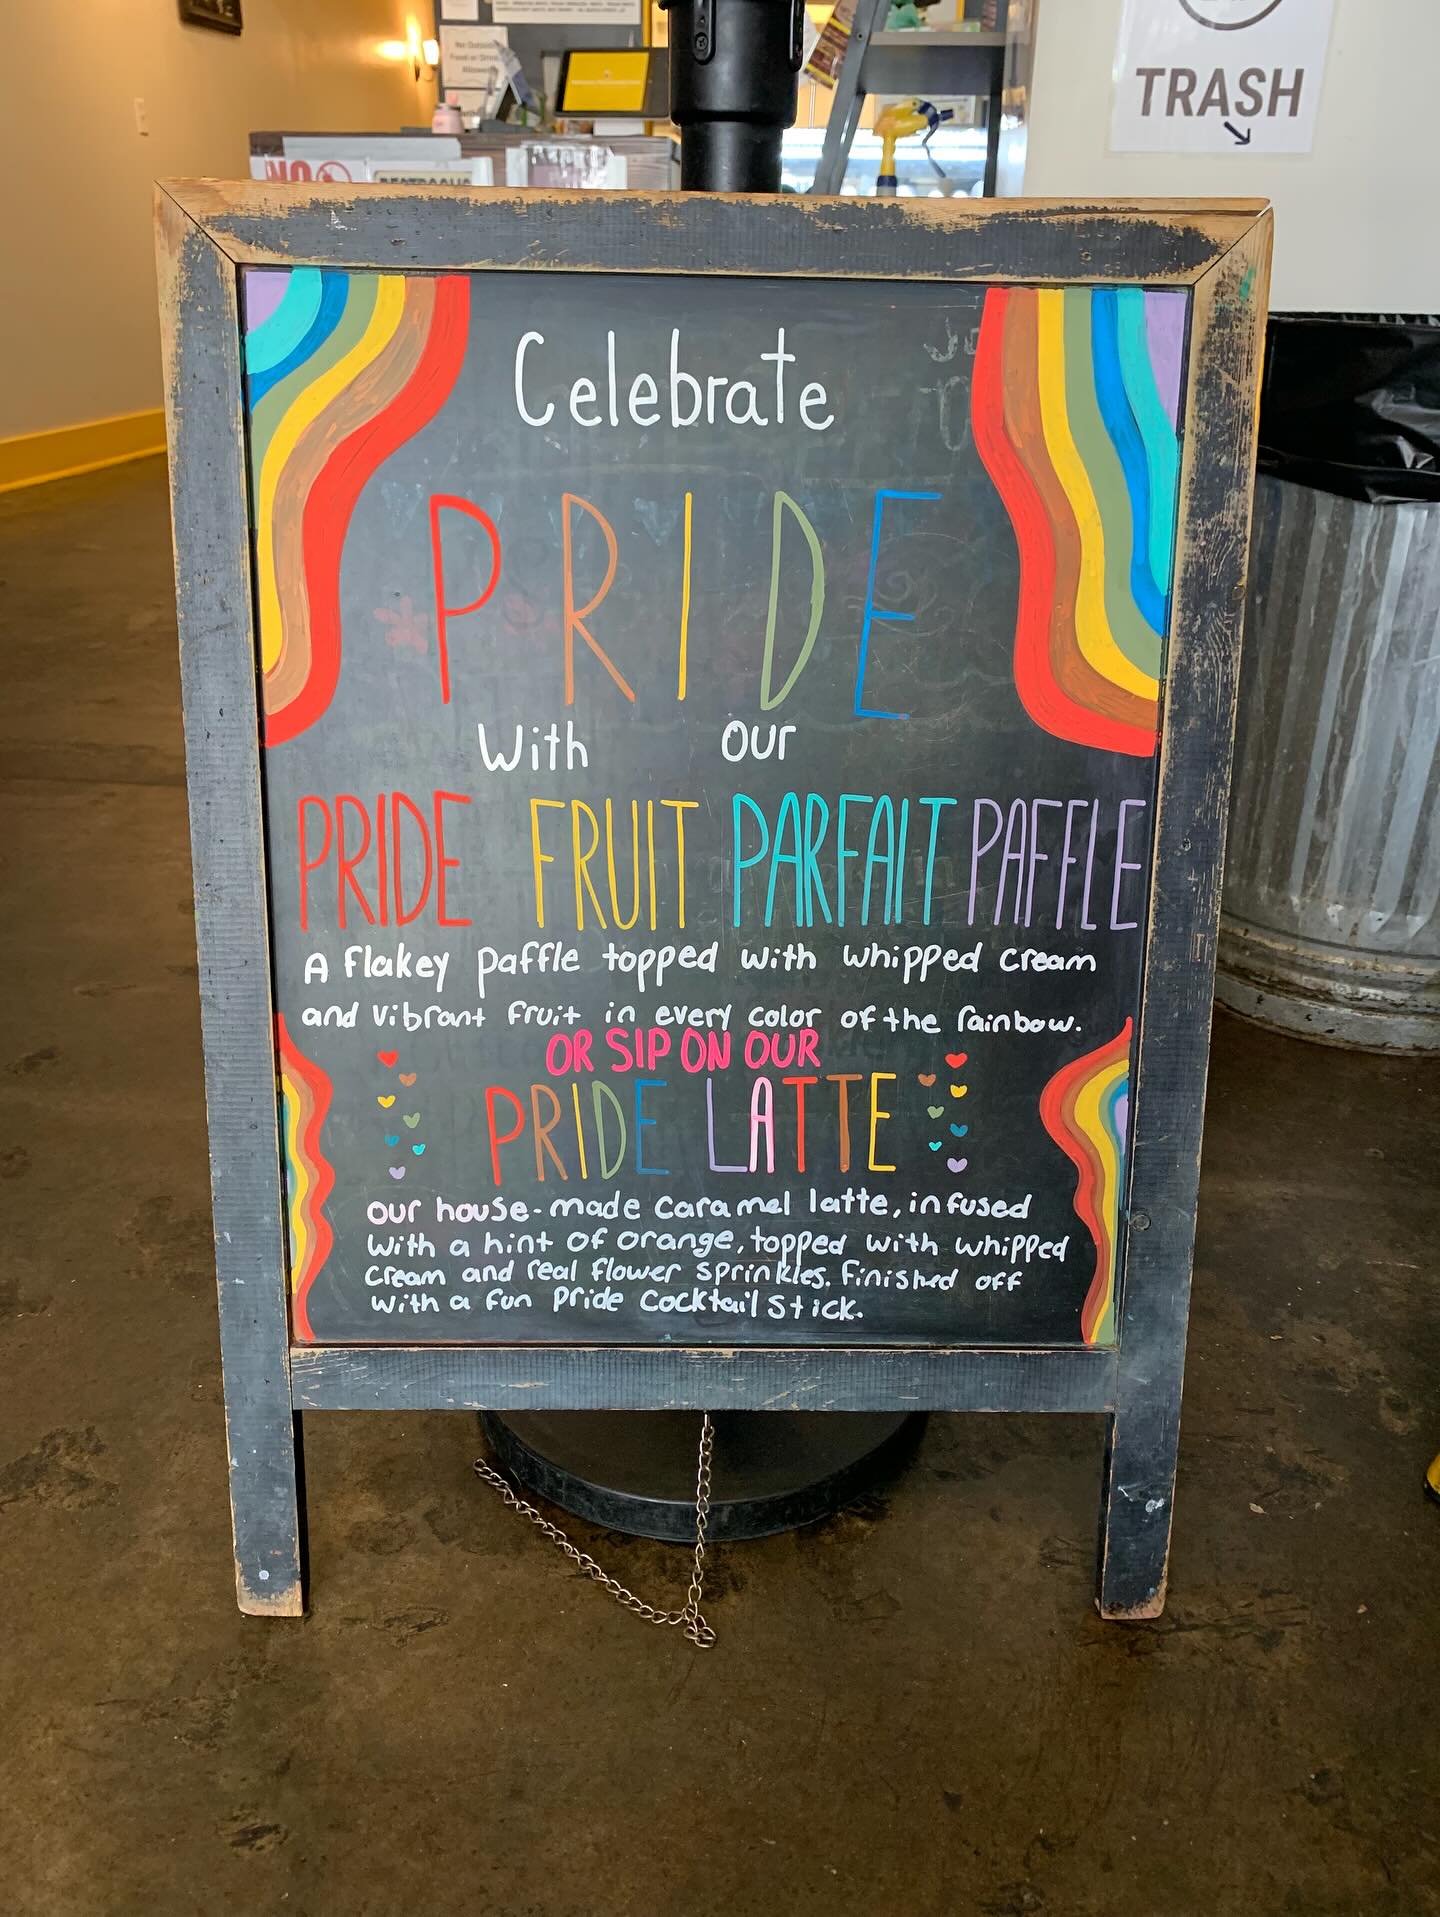 No Outside
Food or Drink
Allowed
TRASH
NO
RESTROOMS
Celebrate
PRIDE
With our
PRIDE FRUIT PARFAIT PAFFLE
A flakey paffle topped with whipped cream
and vibrant fruit in every color of the rainbow.
OR SIP ON OUR
PRIDE LATTE
our house-made caramel latte, infused
with a hint of orange, topped with whipped
cream and real flower sprinkles. Finished off
with a fun pride cocktail stick.